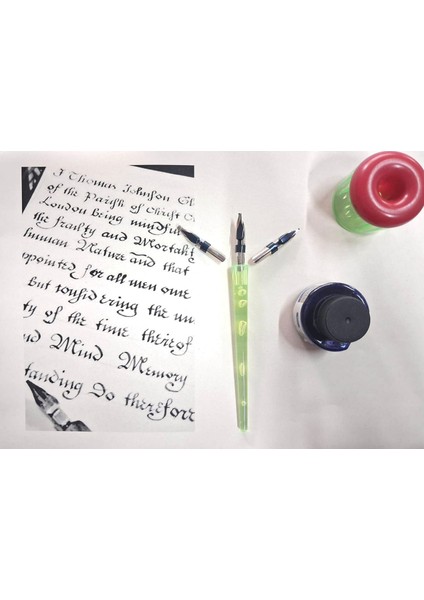 I Thomas Johnson Cl
of the Parish of Christ C
London being mindful
the frailty and Mortality
human Nature and that
ppointed for all men once
But considering the un
ty of the time thereof
nd Mind Memory
tanding Do therefore